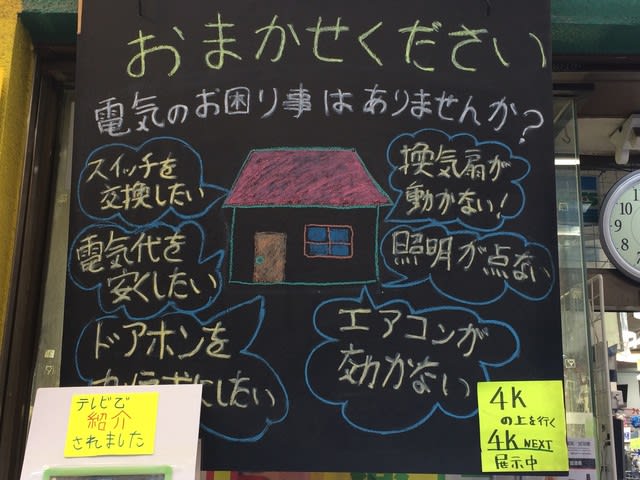 おまかせください
電気のお困り事はありませんか？
スイッチを
交換したい
換気扇が
動かない！
電気代を
安くしたい
照明が点ない
ドアホンを
にしたい
エアコンが
効かない
テレビで
紹介
されました
4K
の上を行く
4K NEXT
展示中